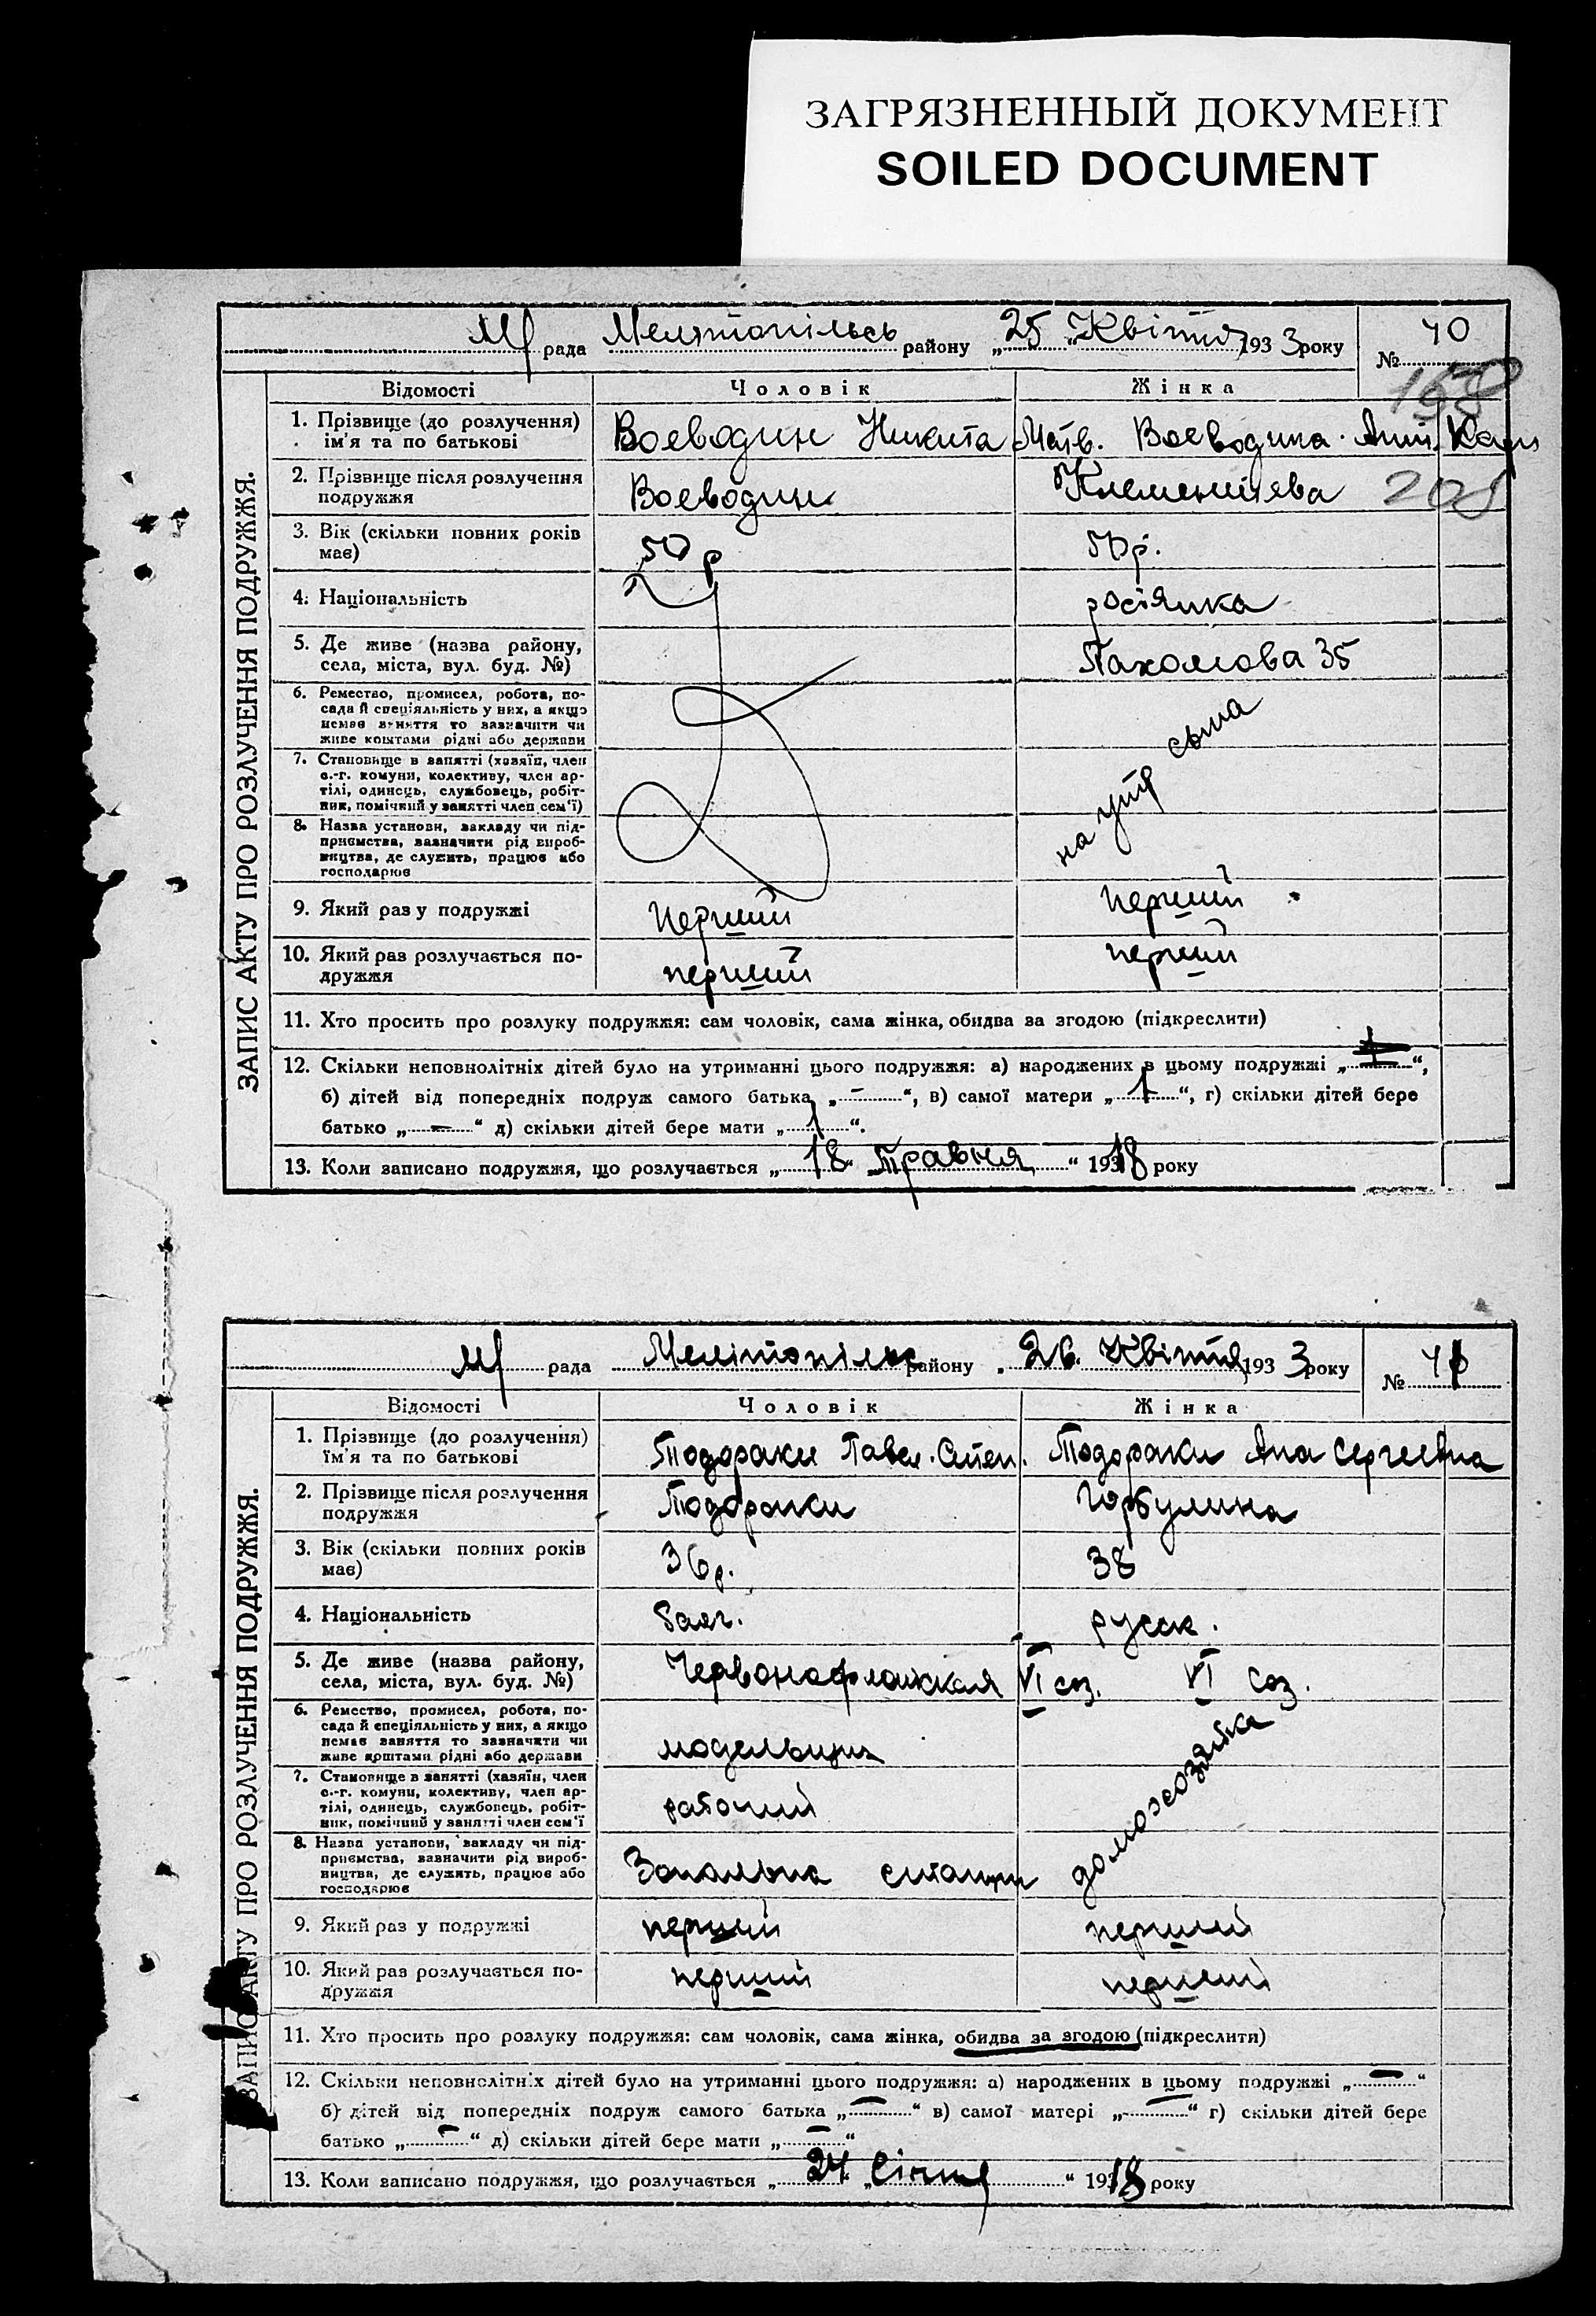 ЗАГРЯЗНЕННЫЙ ДОКУМЕНТ
SOILED DOCUMENT
ЗАПИС АКТУ ПРО РОЗЛУЧЕННЯ ПОДРУЖЖЯ.
рада Мелитопільсь району „25“ Квітня 1933 року № 40
158
Відомості Чоловік Жінка
1. Прізвище (до розлучення) ім'я та по батькові Воеводин Никита Матв. Воеводина
2. Прізвище після розлучення подружжя Воеводин Клементьева 208
3. Вік (скільки повних років має) 50 р 50 р.
4. Національність росіянка
5. Де живе (назва району, села, міста, вул. буд. №) Пахомова 35
6. Ремество, промисел, робота, посада й спеціяльність у них, а якщо немає заняття то зазначити чи живе коштами рідні або держави
7. Становище в занятті (хазяїн, член с.-г. комуни, колективу, член артілі, одинець, службовець, робітник, помічний у занятті член сем'ї)
8. Назва установи, закладу чи підприємства, зазначити рід виробництва, де служить, працює або господарює
на утр сына
9. Який раз у подружжі перший перший
10. Який раз розлучається подружжя перший перший
11. Хто просить про розлуку подружжя: сам чоловік, сама жінка, обидва за згодою (підкреслити)
12. Скільки неповнолітніх дітей було на утриманні цього подружжя: а) народжених в цьому подружжі „ “,
б) дітей від попередніх подруж самого батька „—“, в) самої матери „1“, г) скільки дітей бере
батько „—“ д) скільки дітей бере мати „1“.
13. Коли записано подружжя, що розлучається „18“ „Травня“ 1918 року
ЗАПИС АКТУ ПРО РОЗЛУЧЕННЯ ПОДРУЖЖЯ.
рада Мелітопільс району 26. Квітня 1933 року № 41
Відомості Чоловік Жінка
1. Прізвище (до розлучення) їм'я та по батькові Тодораки Павел Степ. Тодораки Ана Сергеевна
2. Прізвище після розлучення подружжя Тодораки Горбулина
3. Вік (скільки повних років має) 36 р. 38
4. Національність болг. русск.
5. Де живе (назва району, села, міста, вул. буд. №) Червонофлажская VI соз. VI соз.
6. Ремество, промисел, робота, посада й спеціяльність у них, а якщо немає заняття то зазначити чи живе коштами рідні або держави модельщик
7. Становище в занятті (хазяїн, член с.-г. комуни, колективу, член артілі, одинець, службовець, робітник, помічний у занятті член сем'ї рабочий
8. Назва установи, закладу чи підприємства, зазначити рід виробництва, де служить, працює або господарює домохозяйка
9. Який раз у подружжі перший перший
10. Який раз розлучається подружжя перший перший
11. Хто просить про розлуку подружжя: сам чоловік, сама жінка, обидва за згодою (підкреслити)
12. Скільки неповнолітніх дітей було на утриманні цього подружжя: а) народжених в цьому подружжі „—“
б) дітей від попередніх подруж самого батька „—“ в) самої матері „—“ г) скільки дітей бере
батько „—“ д) скільки дітей бере мати „—“
13. Коли записано подружжя, що розлучається „24“ „Січня“ 1918 року